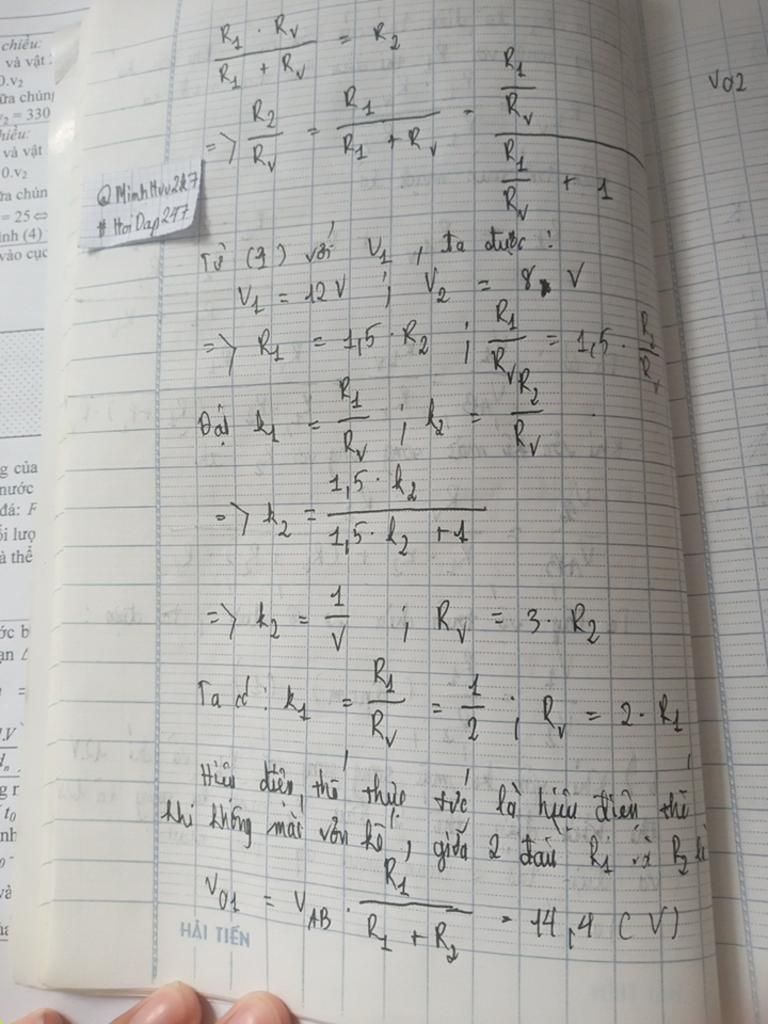 chiều:
và vật
0.v₂
ữa chúng
v₂ = 330
hiều:
và vật
0.v₂
ữa chún
= 25 ⇔
ình (4)
vào cục
g của
nước
đá: F
ối lượ
à thể
ớc b
ạn
R₁ · Rᵥ / R₁ + Rᵥ = R₂
=> R₂/Rᵥ = R₁ / R₁ + Rᵥ = R₁/Rᵥ / R₁/Rᵥ + 1
V02
@MinhHuu2k7
#HoiDap247
Từ (1) với V₁, ta được:
V₁ = 12V ; V₂ = 8 V
=> R₁ = 1,5 · R₂ ; R₁/Rᵥ = 1,5 · R₂/Rᵥ
Đặt k₁ = R₁/Rᵥ ; k₂ = R₂/Rᵥ
=> k₂ = 1,5 · k₂ / 1,5 · k₂ + 1
=> k₂ = 1/V ; Rᵥ = 3 · R₂
Ta có: k₁ = R₁/Rᵥ = 1/2 ; Rᵥ = 2 · R₁
Hiệu điện thế thực tức là hiệu điện thế
khi không mắc vôn kế, giữa 2 đầu R₁ và R₂ là
V01 = V_AB · R₁ / R₁ + R₂ = 14,4 (V)
HẢI TIẾN